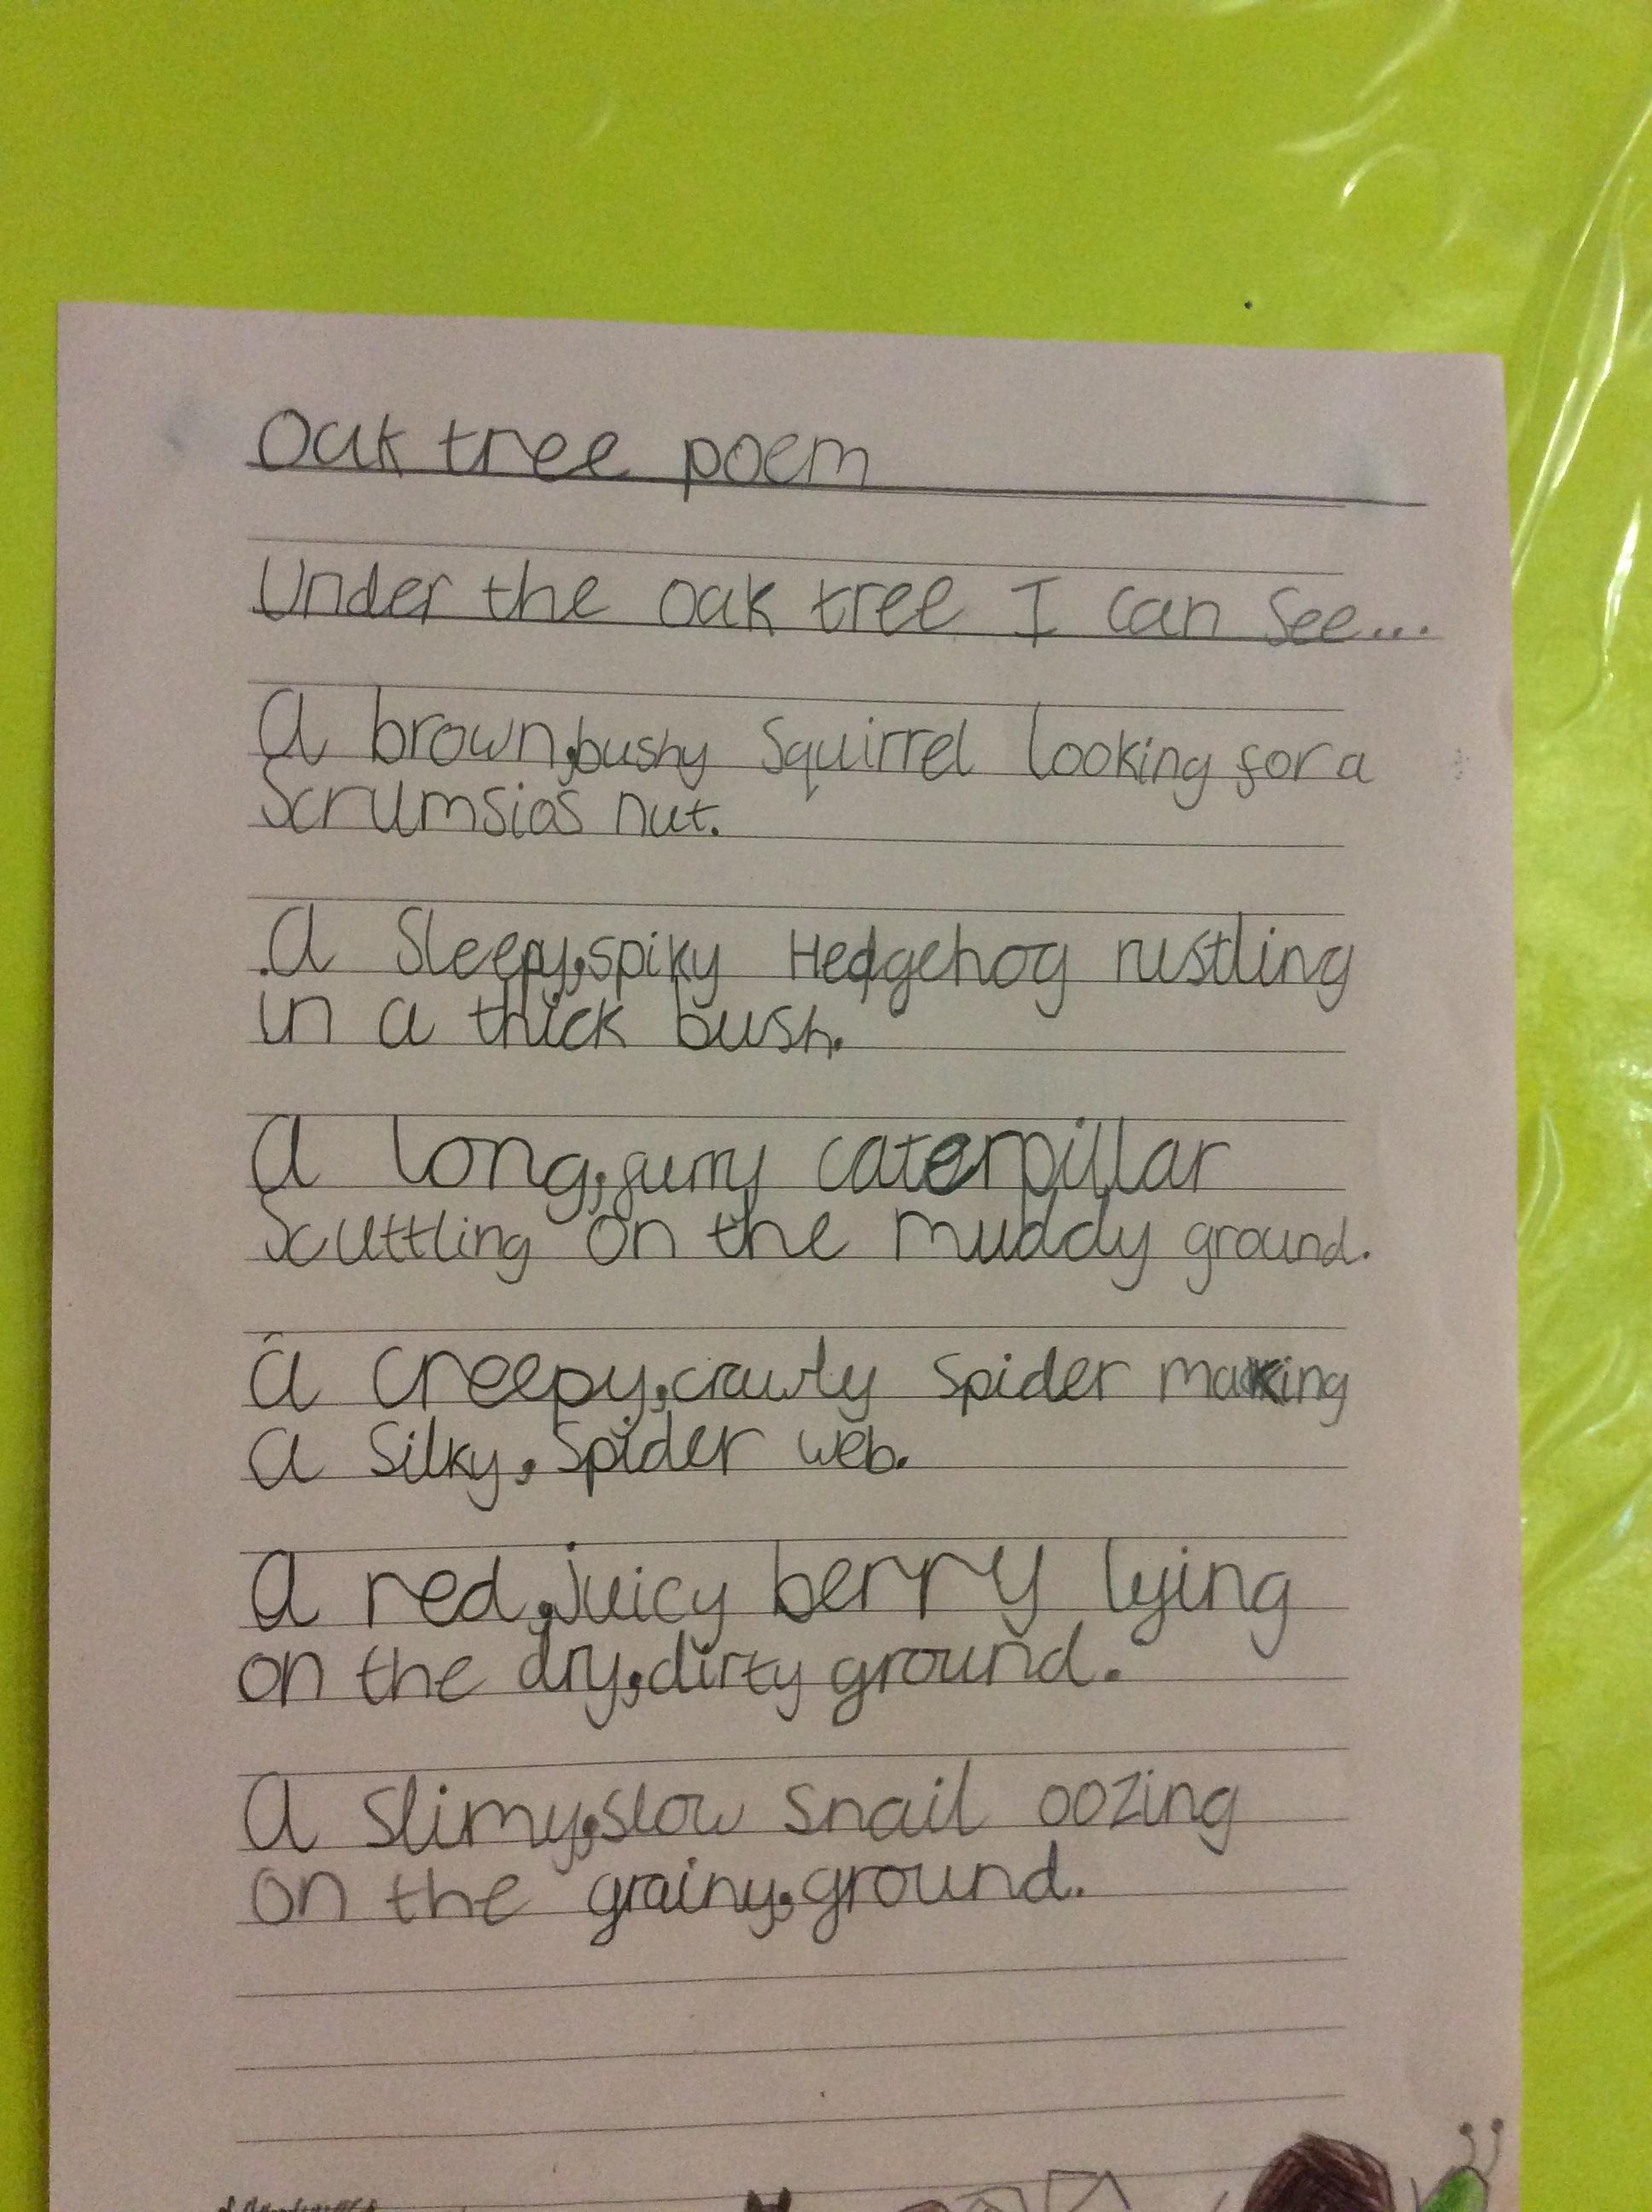 Oak tree poem
Under the oak tree I can see...
a brown,bushy squirrel looking for a
scrumsios nut.
a sleepy,spiky Hedgehog rustling
in a thick bush.
a long,furry caterpillar
scuttling on the muddy ground.
a creepy,crawly spider making
a silky, spider web.
a red,juicy berry lying
on the dry,dirty ground.
a slimy,slow snail oozing
on the grainy,ground.